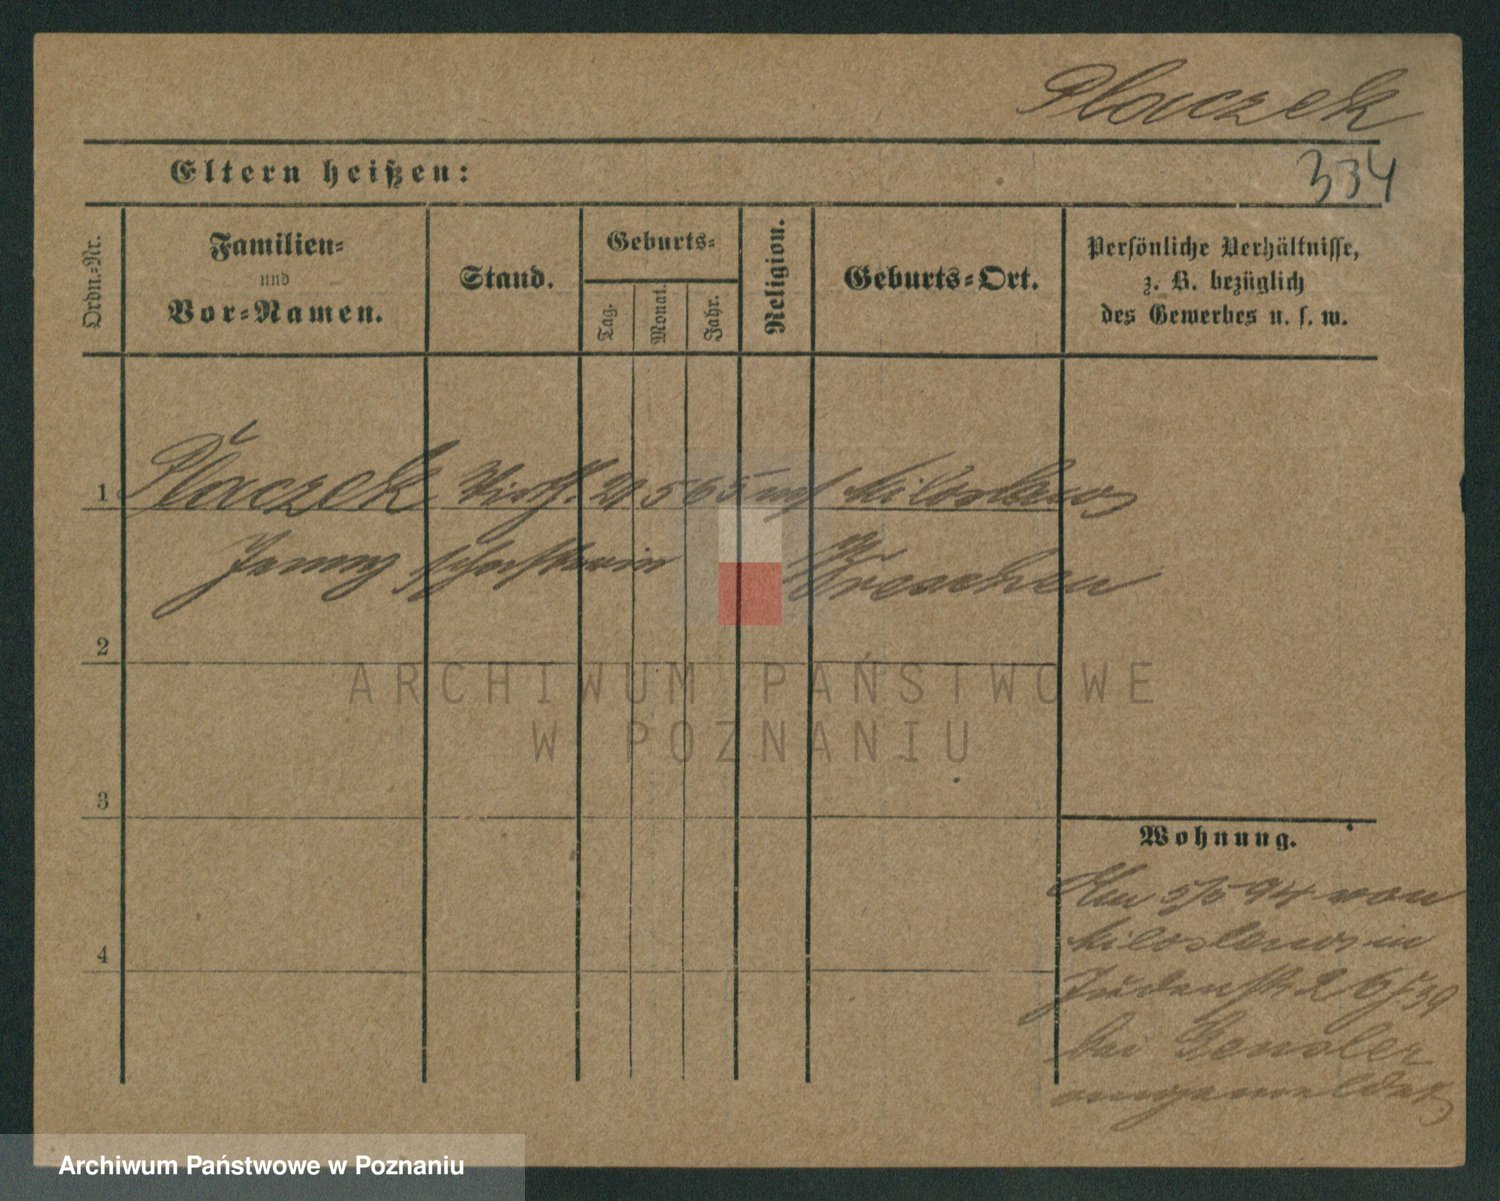 Placzek
334
Eltern heißen:
Ordn.=Nr.
Familien=
und
Vor=Namen.
Stand.
Geburts=
Tag.
Monat.
Jahr.
Religion.
Geburts=Ort.
Persönliche Verhältnisse,
z. B. bezüglich
des Gewerbes u. s. w.
1 Placzek 5 65 Miloslaw
Jenny Wreschen
2
3
4
Wohnung.
Am 5/5 94 von
Miloslaw in
Judenstr 26/39
bei Gensler
angemeldet
ARCHIWUM PAŃSTWOWE
W POZNANIU
Archiwum Państwowe w Poznaniu